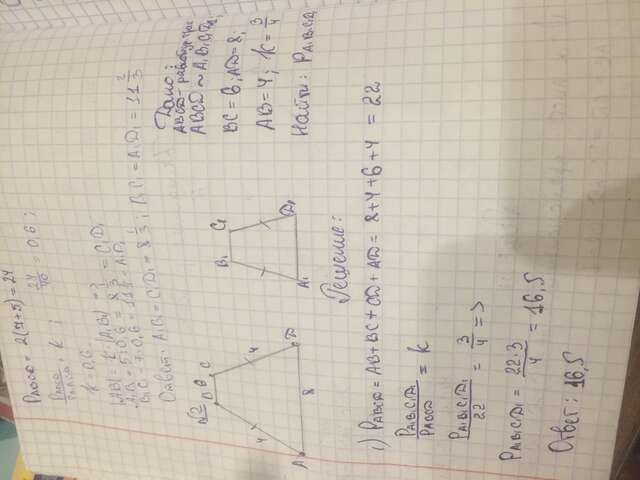 PABCD = 2(7+5) = 24
PABCD/PA₁B₁C₁D₁ = k ; 24/40 = 0,6 ;
k = 0,6
|AB| = k·|A₁B₁| =>
A₁B₁ = 5:0,6 = 8 1/3 = C₁D₁
B₁C₁ = 7:0,6 = 11 2/3 = A₁D₁
Ответ: A₁B₁ = C₁D₁ = 8 1/3 ; B₁C₁ = A₁D₁ = 11 2/3
№2
B 6 C
4 4
A 8 D
B₁ C₁
A₁ D₁
Дано:
ABCD - равнобук трап
ABCD ~ A₁B₁C₁D₁,
BC = 6; AD = 8;
AB = 4; k = 3/4
Найти: PA₁B₁C₁D₁
Решение:
1) PABCD = AB + BC + CD + AD = 8+4+6+4 = 22
PA₁B₁C₁D₁/PABCD = k
PA₁B₁C₁D₁/22 = 3/4 =>
PA₁B₁C₁D₁ = 22·3/4 = 16,5
Ответ: 16,5